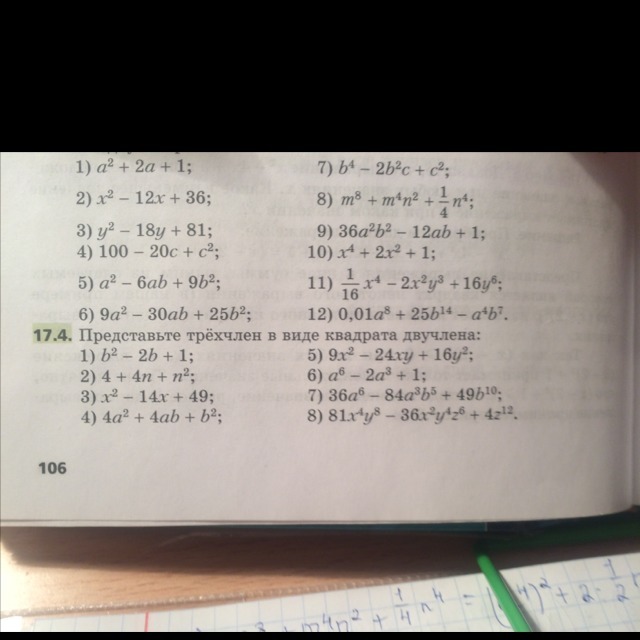 1) a² + 2a + 1;
2) x² − 12x + 36;
3) y² − 18y + 81;
4) 100 − 20c + c²;
5) a² − 6ab + 9b²;
6) 9a² − 30ab + 25b²;
7) b⁴ − 2b²c + c²;
8) m⁸ + m⁴n² + 1/4 n⁴;
9) 36a²b² − 12ab + 1;
10) x⁴ + 2x² + 1;
11) 1/16 x⁴ − 2x²y³ + 16y⁶;
12) 0,01a⁸ + 25b¹⁴ − a⁴b⁷.
17.4. Представьте трёхчлен в виде квадрата двучлена:
1) b² − 2b + 1;
2) 4 + 4n + n²;
3) x² − 14x + 49;
4) 4a² + 4ab + b²;
5) 9x² − 24xy + 16y²;
6) a⁶ − 2a³ + 1;
7) 36a⁶ − 84a³b⁵ + 49b¹⁰;
8) 81x⁴y⁸ − 36x²y⁴z⁶ + 4z¹².
106
+ m⁴n² + 1/4 n⁴ = ( ⁴)² + 2 · 1/2